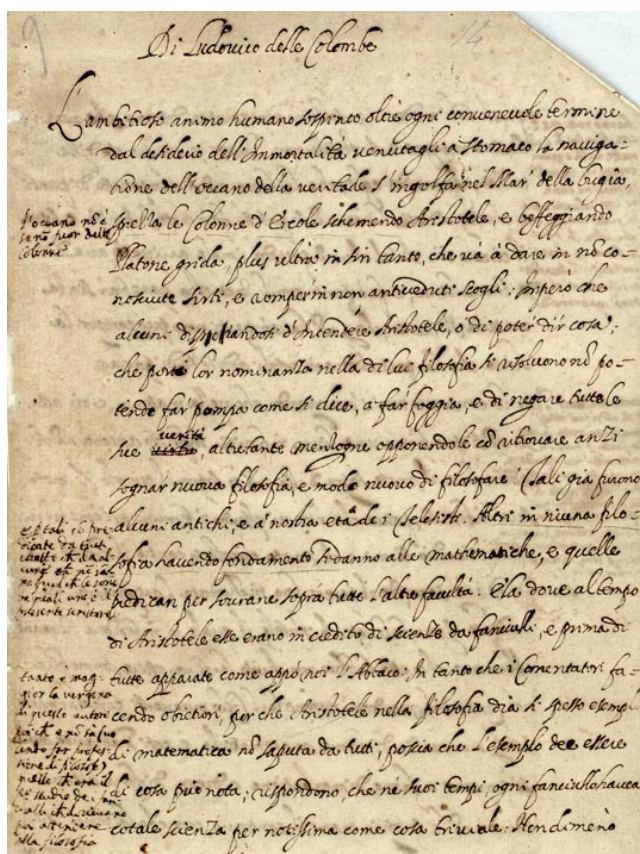 9
14
Di Ludovico delle Colombe
L'ambitioso animo humano sospinto oltre ogni convenevole termine
dal desiderio dell'Immortalità venutagli à stomaco la naviga-
tione dell'oceano della veritade s'ingolfa nel Mar della bugia,
sprezza le Colonne d'Ercole schernendo Aristotele, e beffeggiando
Platone grida, plus ultra in sin tanto, che và à dare in nō co-
nosciute sirti, e romper in non antiveduti scogli; Imperò che
alcuni disperandosi d'Intendere Aristotele, o di poter dir cosa,
che porti lor nominanza nella di lui filosofia si risolvono nō po-
tendo far pompa come si dice, a far foggia, e di negare tutte le
sue verità, altretante menzogne opponendole cō ritrovare anzi
sognar nuova filosofia, e modo nuovo di filosofare. Tali già furono
alcuni antichi, e à nostra età de i Telesisti. Altri in niuna filo-
sofia havendo fondamento si danno alle mathematiche, e quelle
predican per sourane sopra tutte l'altre facultà. E la dove al tempo
di Aristotele esse erano in credito di scienze da fanciulli, e prima di
tutte apparate come appò noi l'Abbaco; In tanto che i Comentatori fa-
cendo obiettioni, perche Aristotele nella filosofia dia sì spesso esempi
di matematica nō saputa da tutti, poscia che l'esemplo dee essere
di cosa più nota; rispondono, che nè suoi tempi, ogni fanciullo havea
cotale scienza per notissima come cosa triviale. Nondimenò
l'oceano nō è
se nō fuor delle
colonne
e tali
tanto è mag-
gior la vergogna
di questi autori
la filosofia